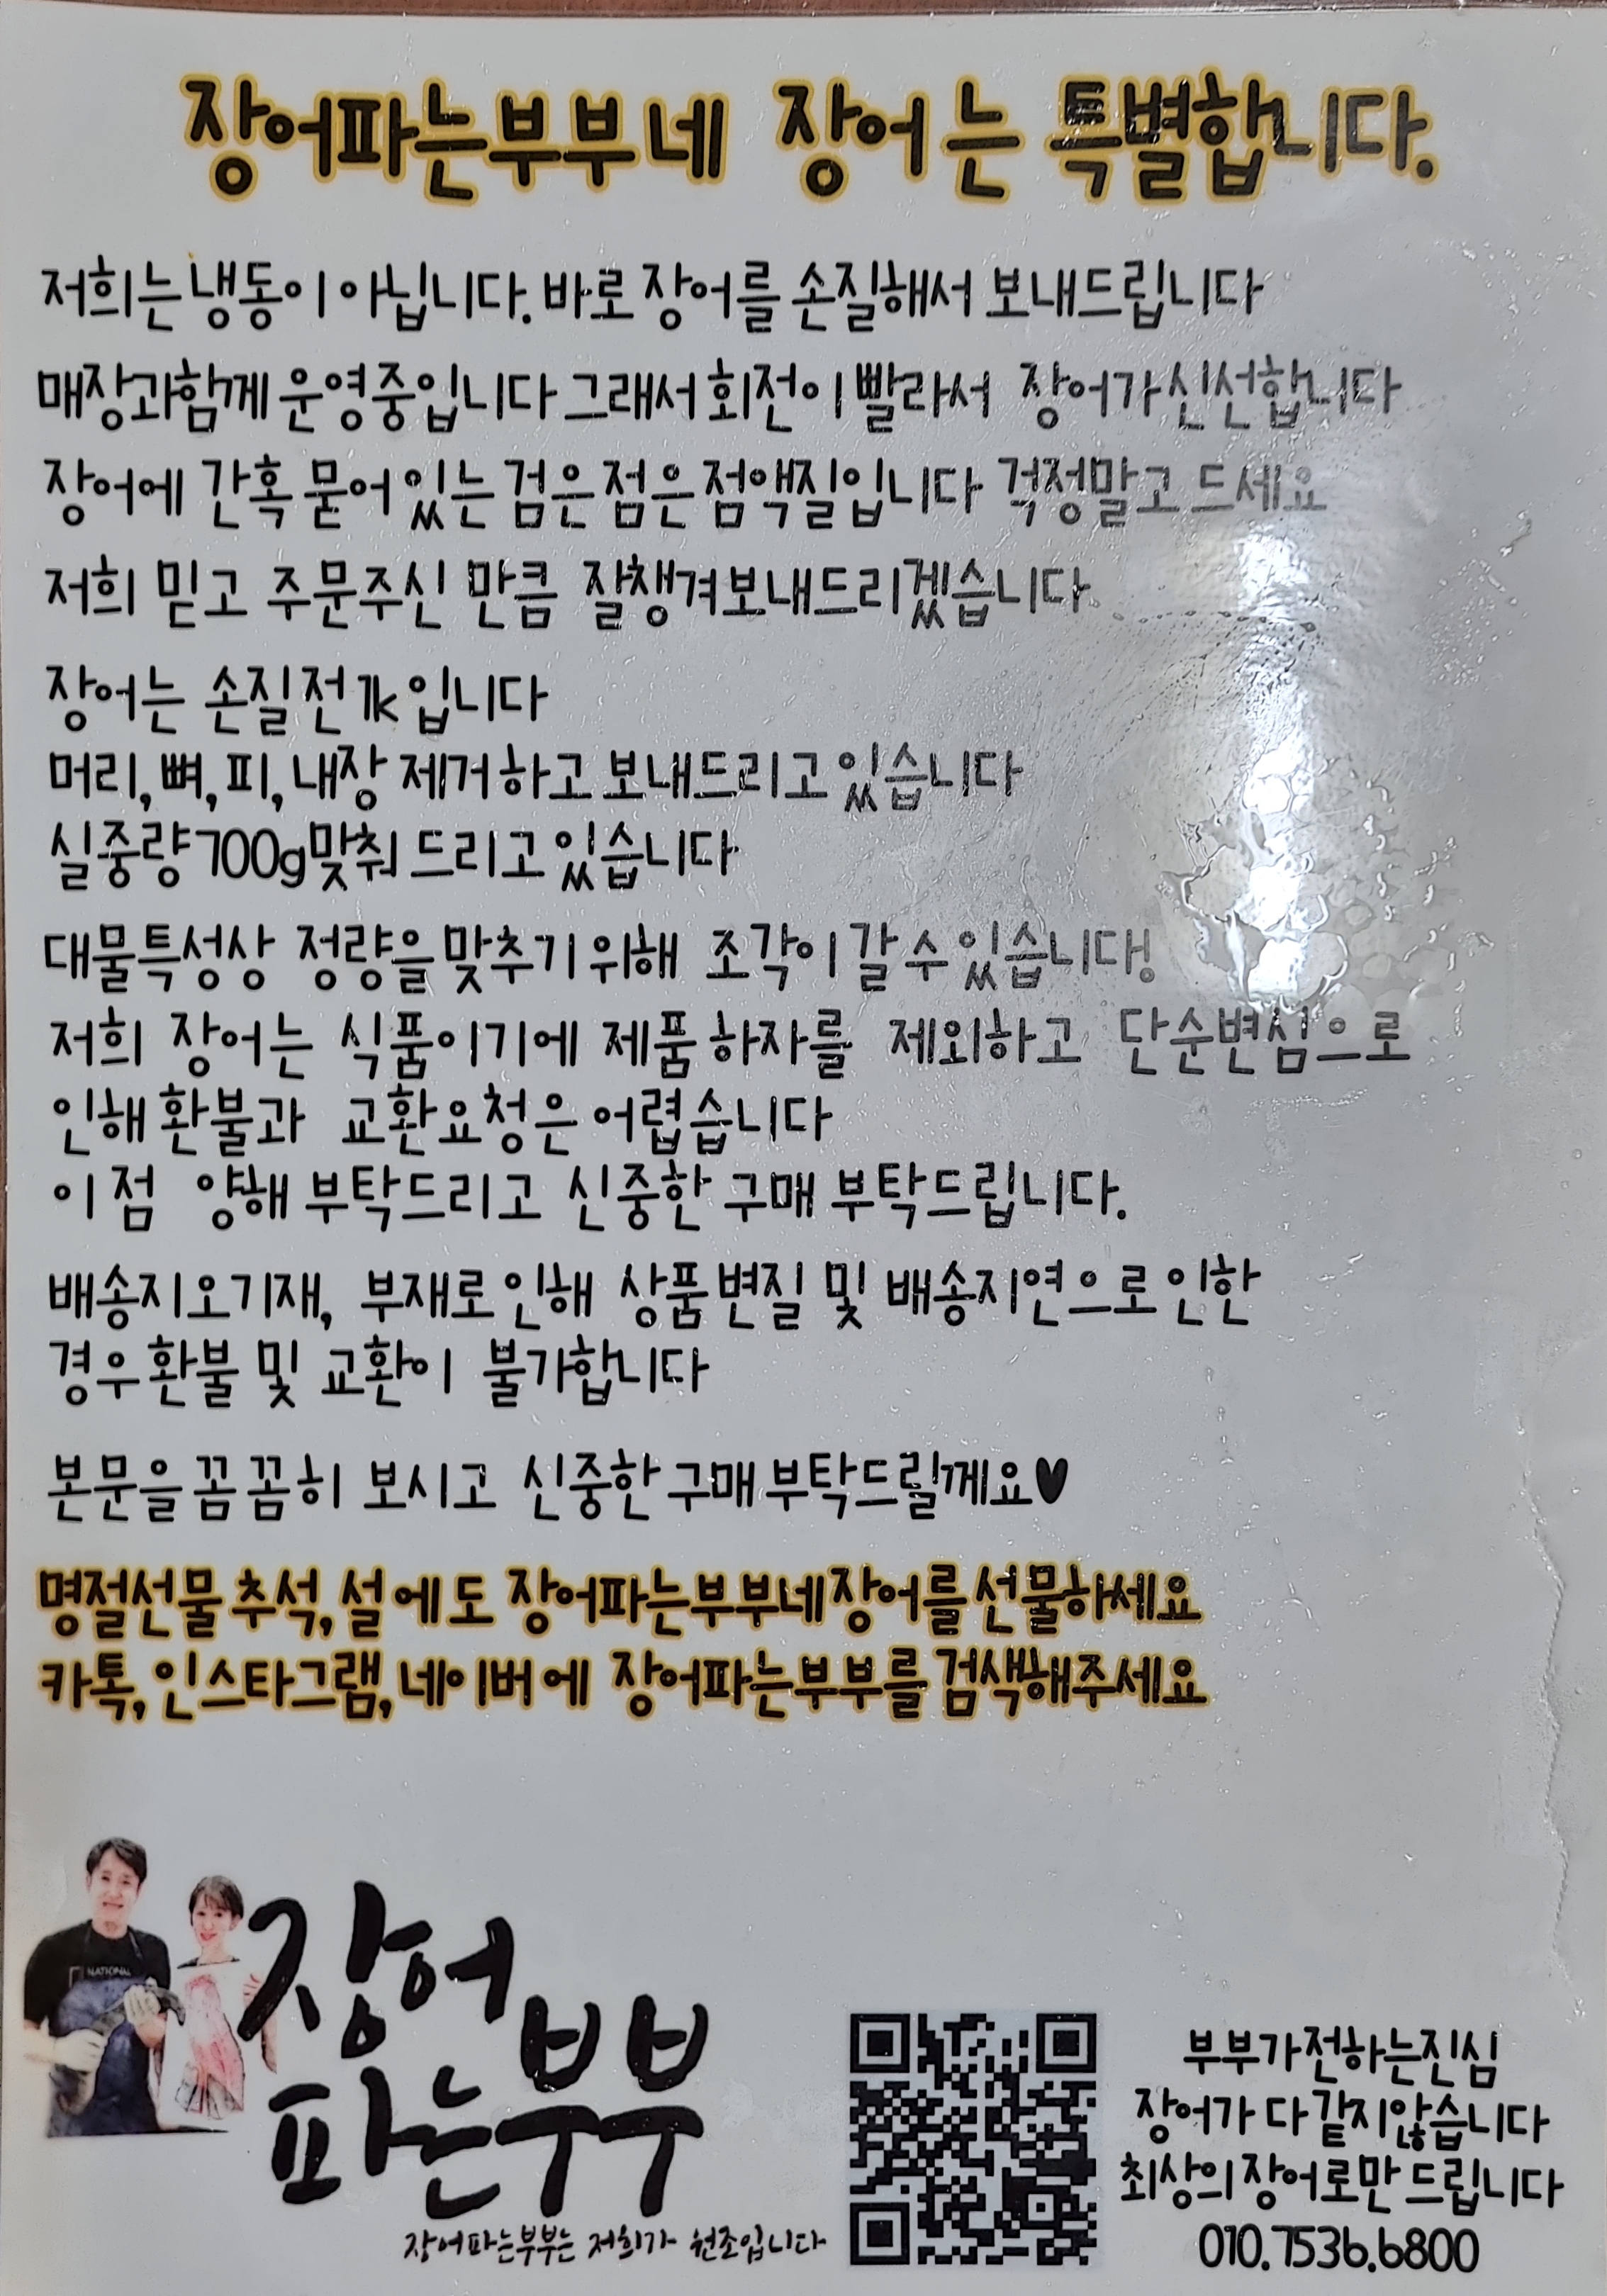 장어파는부부네 장어는 특별합니다.
저희는 냉동이 아닙니다. 바로 장어를 손질해서 보내드립니다
매장과함께 운영중입니다 그래서 회전이 빨라서 장어가 신선합니다
장어에 간혹 묻어 있는 검은 점은 점액질입니다 걱정말고 드세요
저희 믿고 주문주신 만큼 잘챙겨보내드리겠습니다.
장어는 손질전 1k입니다
머리, 뼈, 피, 내장 제거하고 보내드리고 있습니다
실중량 700g맞춰 드리고 있습니다
대물특성상 정량을 맞추기 위해 조각이 갈 수 있습니다!
저희 장어는 식품이기에 제품 하자를 제외하고 단순변심으로
인해 환불과 교환요청은 어렵습니다
이 점 양해 부탁드리고 신중한 구매 부탁드립니다.
배송지오기재, 부재로 인해 상품 변질 및 배송지연으로 인한
경우 환불 및 교환이 불가합니다
본문을 꼼꼼히 보시고 신중한 구매 부탁드릴께요♥
명절선물 추석, 설에도 장어파는부부네 장어를 선물하세요
카톡, 인스타그램, 네이버에 장어파는부부를 검색해주세요
NATIONAL
장어
파는부부
장어파는부부는 저희가 원조입니다
부부가전하는진심
장어가 다 같지않습니다
최상의 장어로만 드립니다
010.7536.6800